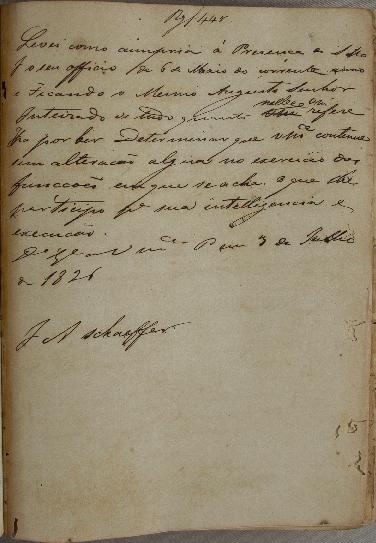 Rg f 44v
Levei como cumpria á Presença de S M o
I o seu officio de 6 de Maio do corrente anno
e Ficando o Mesmo Augusto Senhor
Inteirado de tudo quanto nelle Vmce refere
Ha por bem Determinar que Vmce continue
sem alteração algua no exercicio das
funccoes em que se acha. o que lhe
participo pa sua intelligencia e
execucão.
Ds Ge a Vmce P em 3 de Julho
de 1826
J A Schaeffer